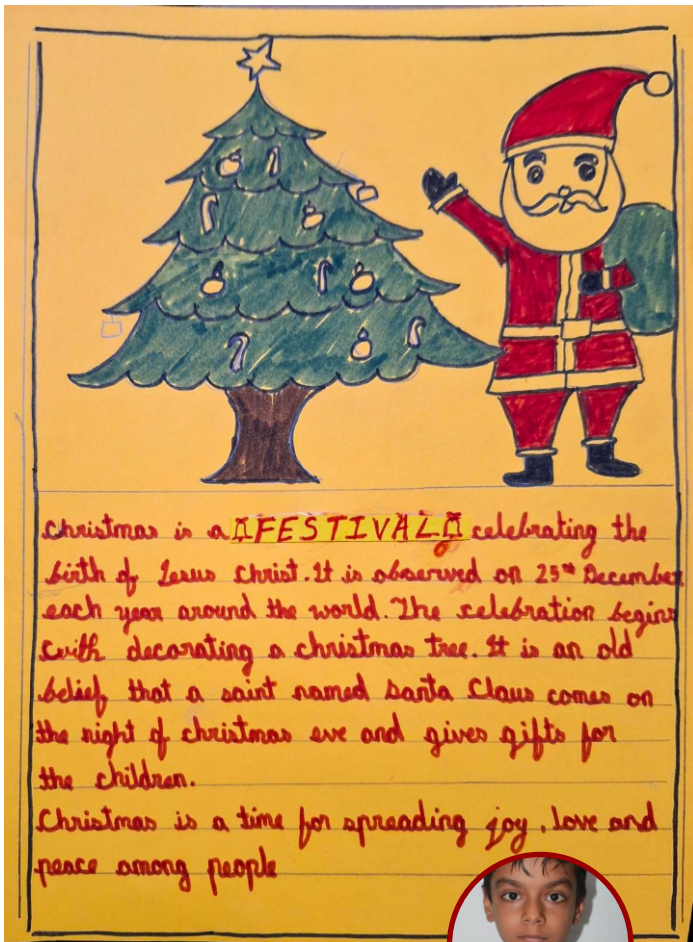 Christmas is a FESTIVAL celebrating the
birth of Jesus Christ. It is observed on 25th December
each year around the world. The celebration begins
with decorating a christmas tree. It is an old
belief that a saint named Santa Claus comes on
the night of christmas eve and gives gifts for
the children.
Christmas is a time for spreading joy, love and
peace among people